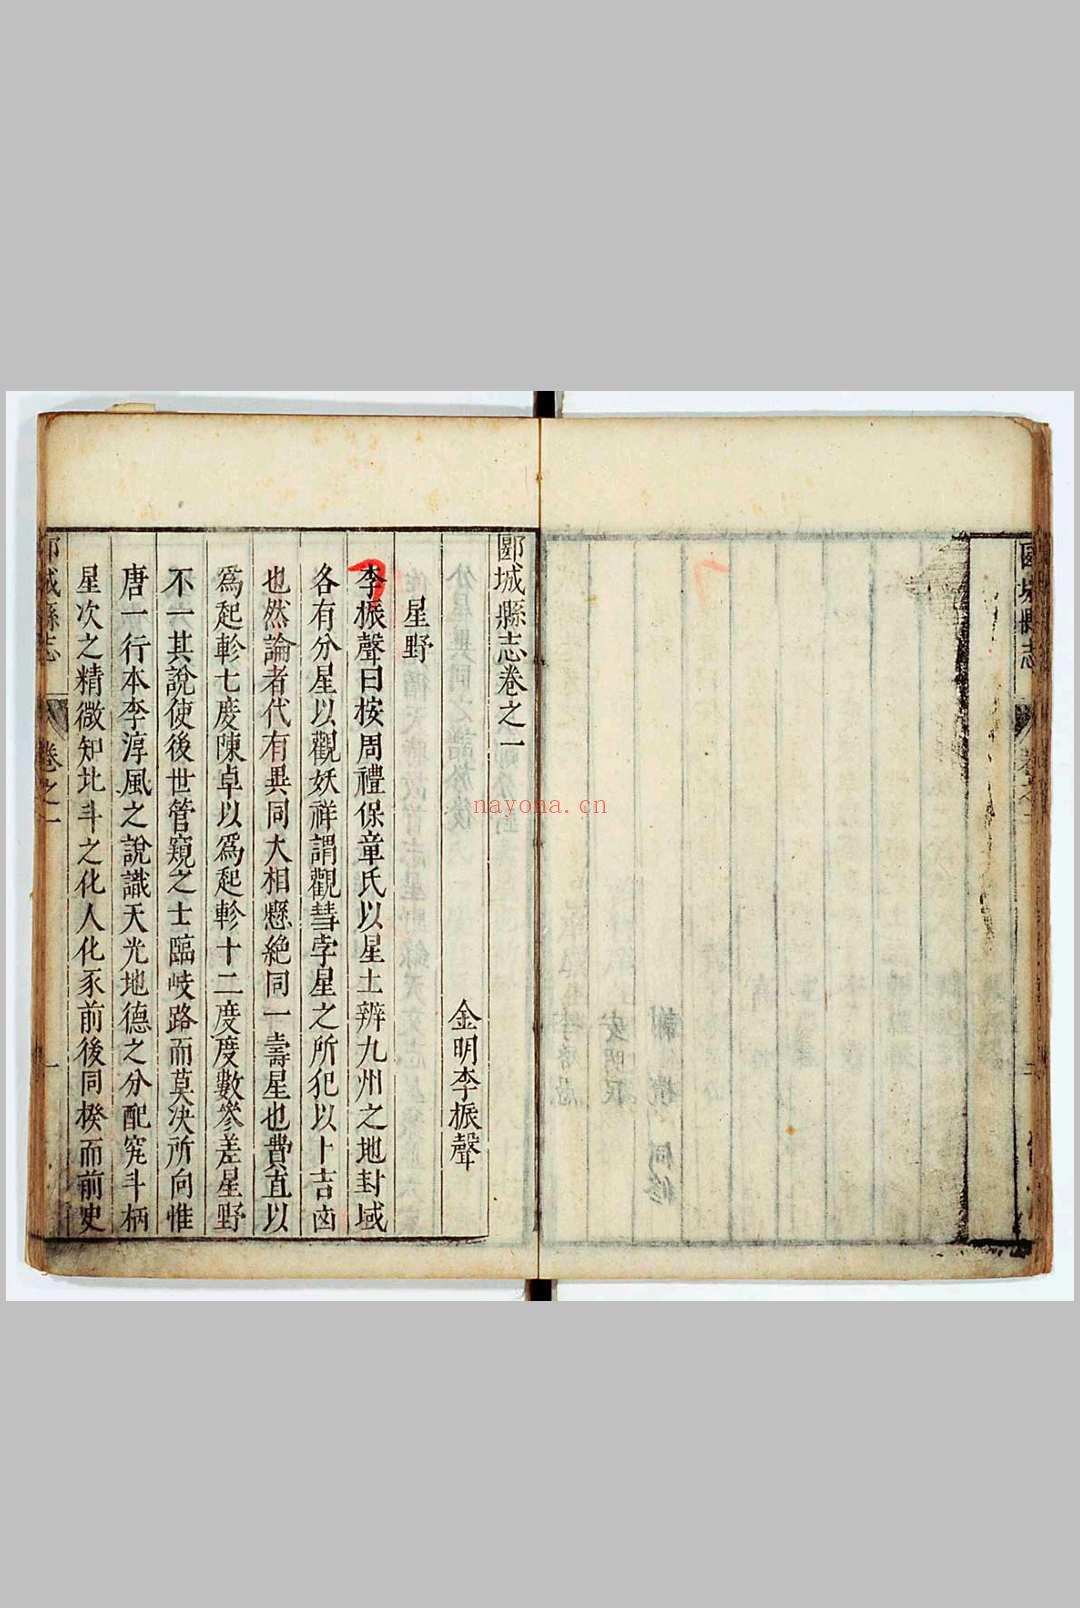 郾城縣志卷之一
金明李振聲
星野
李振聲曰按周禮保章氏以星土辨九州之地封域
各有分星以觀妖祥謂觀彗孛星之所犯以卜吉凶
也然論者代有異同大相懸絶同一壽星也費直以
爲起軫七度陳卓以爲起軫十二度度數參差星野
不一其說使後世管窺之士臨岐路而莫決所向惟
唐一行本李淳風之說識天光地德之分配究斗柄
星次之精微知北斗之化人化豕前後同揆而前史
城縣志
卷之一
一
nayona.cn